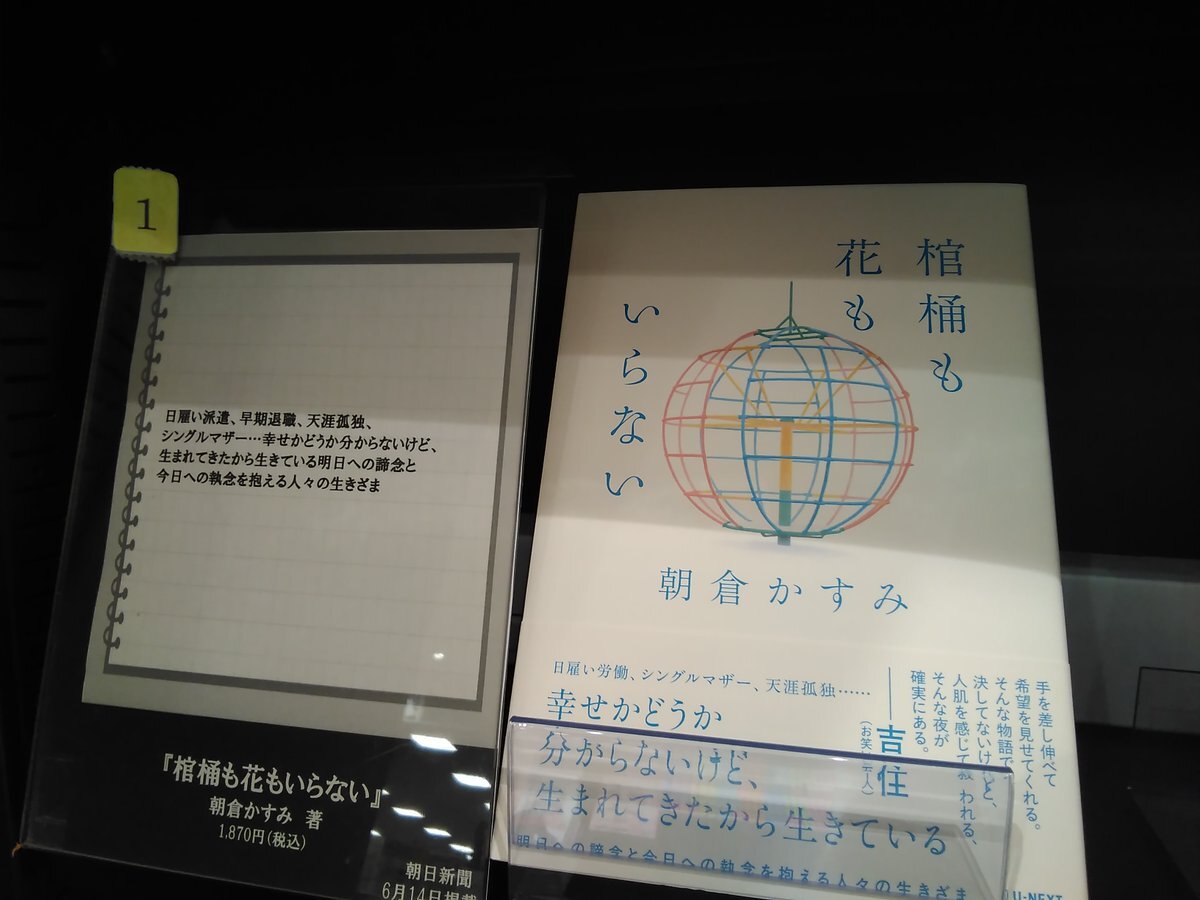 1
日雇い派遣、早期退職、天涯孤独、
シングルマザー…幸せかどうか分からないけど、
生まれてきたから生きている明日への諦念と
今日への執念を抱える人々の生きざま
『棺桶も花もいらない』
朝倉かすみ 著
1,870円(税込)
朝日新聞
6月14日掲載
棺桶も
花も
いらない
朝倉かすみ
手を差し伸べて
希望を見せてくれる。
そんな物語で
決してないけれど、
人肌を感じて救われる、
そんな夜が
確実にある。
――吉住
(お笑い芸人)
日雇い労働、シングルマザー、天涯孤独……
幸せかどうか
分からないけど、
生まれてきたから生きている
明日への諦念と今日への執念を抱える人々の生きざま
U-NEXT